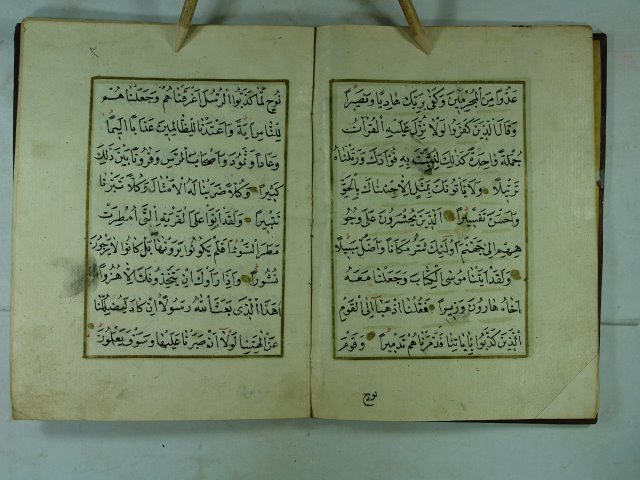 عَدُوًّا مِنَ الْمُجْرِمِينَ وَكَفَى بِرَبِّكَ هَادِيًا وَنَصِيرًا
وَقَالَ الَّذِينَ كَفَرُوا لَوْلَا نُزِّلَ عَلَيْهِ الْقُرْآنُ
جُمْلَةً وَاحِدَةً كَذَلِكَ لِنُثَبِّتَ بِهِ فُؤَادَكَ وَرَتَّلْنَاهُ
تَرْتِيلًا وَلَا يَأْتُونَكَ بِمَثَلٍ إِلَّا جِئْنَاكَ بِالْحَقِّ
وَأَحْسَنَ تَفْسِيرًا الَّذِينَ يُحْشَرُونَ عَلَى وُجُو
هِهِمْ إِلَى جَهَنَّمَ أُولَئِكَ شَرٌّ مَكَانًا وَأَضَلُّ سَبِيلًا
وَلَقَدْ آتَيْنَا مُوسَى الْكِتَابَ وَجَعَلْنَا مَعَهُ
أَخَاهُ هَارُونَ وَزِيرًا فَقُلْنَا اذْهَبَا إِلَى الْقَوْمِ
الَّذِينَ كَذَّبُوا بِآيَاتِنَا فَدَمَّرْنَاهُمْ تَدْمِيرًا وَقَوْمَ
نوح
نُوحٍ لَمَّا كَذَّبُوا الرُّسُلَ أَغْرَقْنَاهُمْ وَجَعَلْنَاهُمْ
لِلنَّاسِ آيَةً وَأَعْتَدْنَا لِلظَّالِمِينَ عَذَابًا أَلِيمًا
وَعَادًا وَثَمُودَ وَأَصْحَابَ الرَّسِّ وَقُرُونًا بَيْنَ ذَلِكَ
كَثِيرًا وَكُلًّا ضَرَبْنَا لَهُ الْأَمْثَالَ وَكُلًّا تَبَّرْنَا
تَتْبِيرًا وَلَقَدْ أَتَوْا عَلَى الْقَرْيَةِ الَّتِي أُمْطِرَتْ
مَطَرَ السَّوْءِ أَفَلَمْ يَكُونُوا يَرَوْنَهَا بَلْ كَانُوا لَا يَرْجُونَ
نُشُورًا وَإِذَا رَأَوْكَ إِنْ يَتَّخِذُونَكَ إِلَّا هُزُوًا
أَهَذَا الَّذِي بَعَثَ اللَّهُ رَسُولًا إِنْ كَادَ لَيُضِلُّنَا
عَنْ آلِهَتِنَا لَوْلَا أَنْ صَبَرْنَا عَلَيْهَا وَسَوْفَ يَعْلَمُونَ